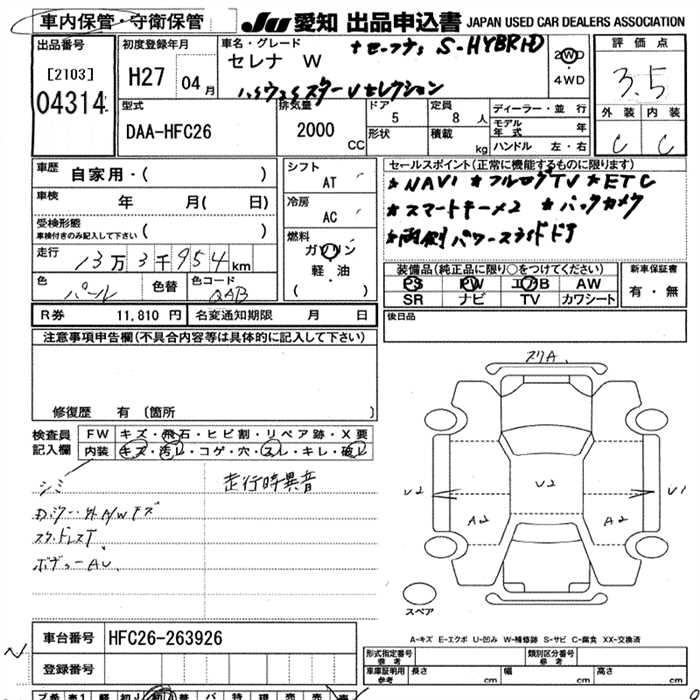 車内保管・守衛保管
JU 愛知 出品申込書 JAPAN USED CAR DEALERS ASSOCIATION
出品番号
[2103]
04314
初度登録年月
H27 04月
車名・グレード
セレナ W
+セーフティ S-HYBRID
ハイウェイスターVセレクション
2WD
4WD
評価点
3.5
外装 内装
C C
型式
DAA-HFC26
排気量
2000 CC
ドア 5
形状
定員 8 人
積載 kg
ディーラー・並行
モデル年式 年
ハンドル 左・右
車歴
自家用・( )
車検 年 月( 日)
受検形態
車検付きのみ記入して下さい ( )
走行 13万3千954km
色 パール 色替 色コード QAB
シフト
AT
冷房
AC
燃料
ガソリン
軽・油
( )
セールスポイント(正常に機能するものに限ります)
*NAVI *フルセグTV *ETC
*スマートキー×2 *バックカメラ
*両側パワースライドドア
装備品(純正品に限り○をつけてください)
PS PW エアB AW
SR ナビ TV カワシート
新車保証書
有・無
R券 11,810円 名変通知期限 月 日
後日品
注意事項申告欄(不具合内容等は具体的に記入して下さい)
修復歴 有 〔箇所 〕
検査員
記入欄
FW キズ・飛石・ヒビ割・リペア跡・X要
内装 キズ・汚レ・コゲ・穴・スレ・キレ・破レ
シミ
走行時異音
外A/Wキズ
スタッドレスT
ボディーAU
スリA.
U2 U2 U1
A2 A2
スペア
A-キズ E-エクボ U-凹み W-補修跡 S-サビ C-腐食 XX-交換済
車台番号 HFC26-263926
登録番号
N
形式指定番号
参考
類別区分番号
参考
車庫証明用
参考
長さ cm 幅 cm 高さ cm